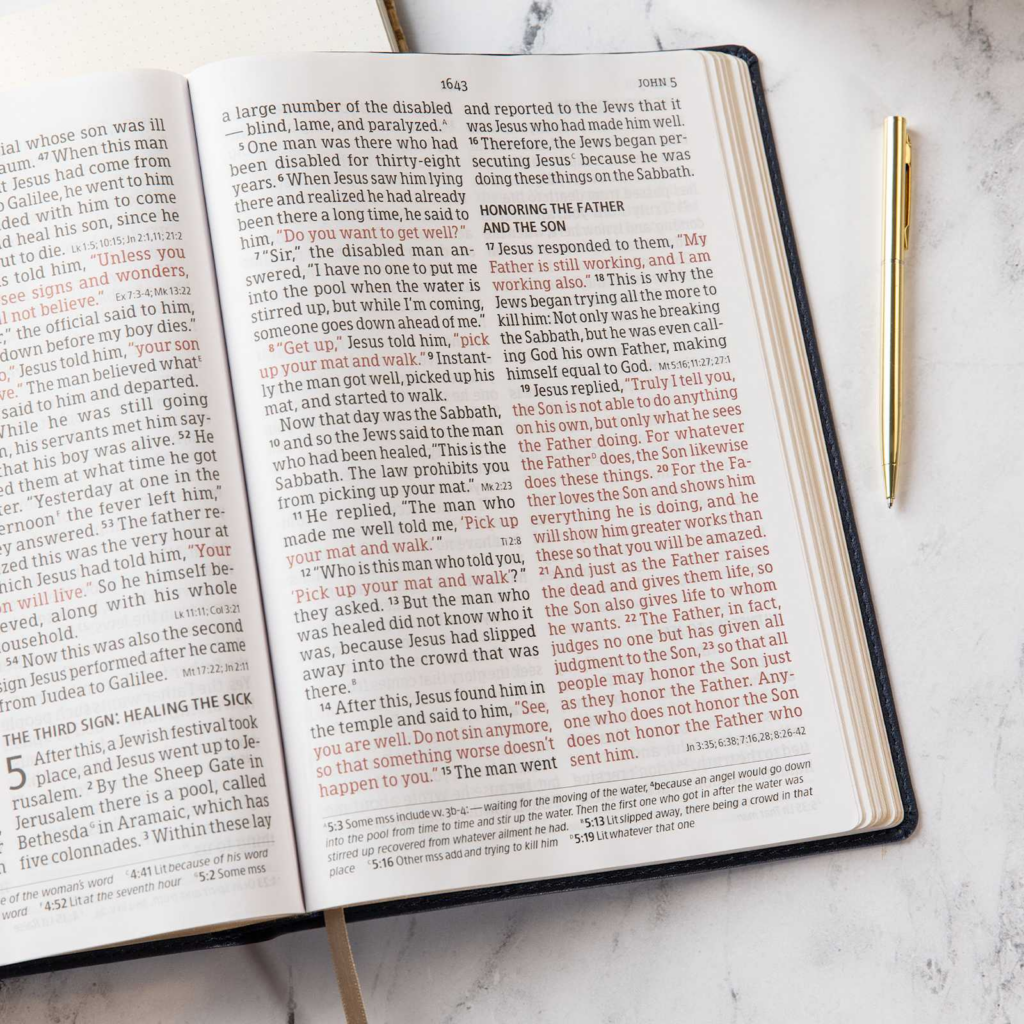 ial whose son was ill
aum. 47 When this man
t Jesus had come from
Galilee, he went to him
ded with him to come
d heal his son, since he
ut to die. Lk 1:5; 10:15; Jn 2:1,11; 21:2
s told him, "Unless you
see signs and wonders,
l not believe." Ex 7:3-4; Mk 13:22
," the official said to him,
down before my boy dies."
," Jesus told him, "your son
ve." The man believed whatᴱ
said to him and departed.
While he was still going
n, his servants met him say-
that his boy was alive. 52 He
ed them at what time he got
ter. "Yesterday at one in the
ernoonᶠ the fever left him,"
y answered. 53 The father re-
zed this was the very hour at
hich Jesus had told him, "Your
n will live." So he himself be-
eved, along with his whole
ousehold. Lk 11:11; Col 3:21
54 Now this was also the second
sign Jesus performed after he came
from Judea to Galilee. Mt 17:22; Jn 2:11
THE THIRD SIGN: HEALING THE SICK
5 After this, a Jewish festival took
place, and Jesus went up to Je-
rusalem. 2 By the Sheep Gate in
Jerusalem there is a pool, called
Bethesdaᴳ in Aramaic, which has
five colonnades. 3 Within these lay
e of the woman's word ᶜ4:41 Lit because of his word
word ᶠ4:52 Lit at the seventh hour ᴳ5:2 Some mss
1643
JOHN 5
a large number of the disabled
— blind, lame, and paralyzed.ᴬ
5 One man was there who had
been disabled for thirty-eight
years. 6 When Jesus saw him lying
there and realized he had already
been there a long time, he said to
him, "Do you want to get well?"
7 "Sir," the disabled man an-
swered, "I have no one to put me
into the pool when the water is
stirred up, but while I'm coming,
someone goes down ahead of me."
8 "Get up," Jesus told him, "pick
up your mat and walk." 9 Instant-
ly the man got well, picked up his
mat, and started to walk.
Now that day was the Sabbath,
10 and so the Jews said to the man
who had been healed, "This is the
Sabbath. The law prohibits you
from picking up your mat." Mk 2:23
11 He replied, "The man who
made me well told me, 'Pick up
your mat and walk.'" Ti 2:8
12 "Who is this man who told you,
'Pick up your mat and walk'?"
they asked. 13 But the man who
was healed did not know who it
was, because Jesus had slipped
away into the crowd that was
there.ᴮ
14 After this, Jesus found him in
the temple and said to him, "See,
you are well. Do not sin anymore,
so that something worse doesn't
happen to you." 15 The man went
and reported to the Jews that it
was Jesus who had made him well.
16 Therefore, the Jews began per-
secuting Jesusᶜ because he was
doing these things on the Sabbath.
HONORING THE FATHER
AND THE SON
17 Jesus responded to them, "My
Father is still working, and I am
working also." 18 This is why the
Jews began trying all the more to
kill him: Not only was he breaking
the Sabbath, but he was even call-
ing God his own Father, making
himself equal to God. Mt 5:16; 11:27; 27:1
19 Jesus replied, "Truly I tell you,
the Son is not able to do anything
on his own, but only what he sees
the Father doing. For whatever
the Fatherᴰ does, the Son likewise
does these things. 20 For the Fa-
ther loves the Son and shows him
everything he is doing, and he
will show him greater works than
these so that you will be amazed.
21 And just as the Father raises
the dead and gives them life, so
the Son also gives life to whom
he wants. 22 The Father, in fact,
judges no one but has given all
judgment to the Son, 23 so that all
people may honor the Son just
as they honor the Father. Any-
one who does not honor the Son
does not honor the Father who
sent him. Jn 3:35; 6:38; 7:16,28; 8:26-42
ᴬ5:3 Some mss include vv. 3b-4: — waiting for the moving of the water, ⁴because an angel would go down
into the pool from time to time and stir up the water. Then the first one who got in after the water was
stirred up recovered from whatever ailment he had. ᴮ5:13 Lit slipped away, there being a crowd in that
place ᶜ5:16 Other mss add and trying to kill him ᴰ5:19 Lit whatever that one